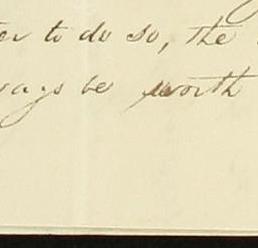 er to do so, the
ways be worth